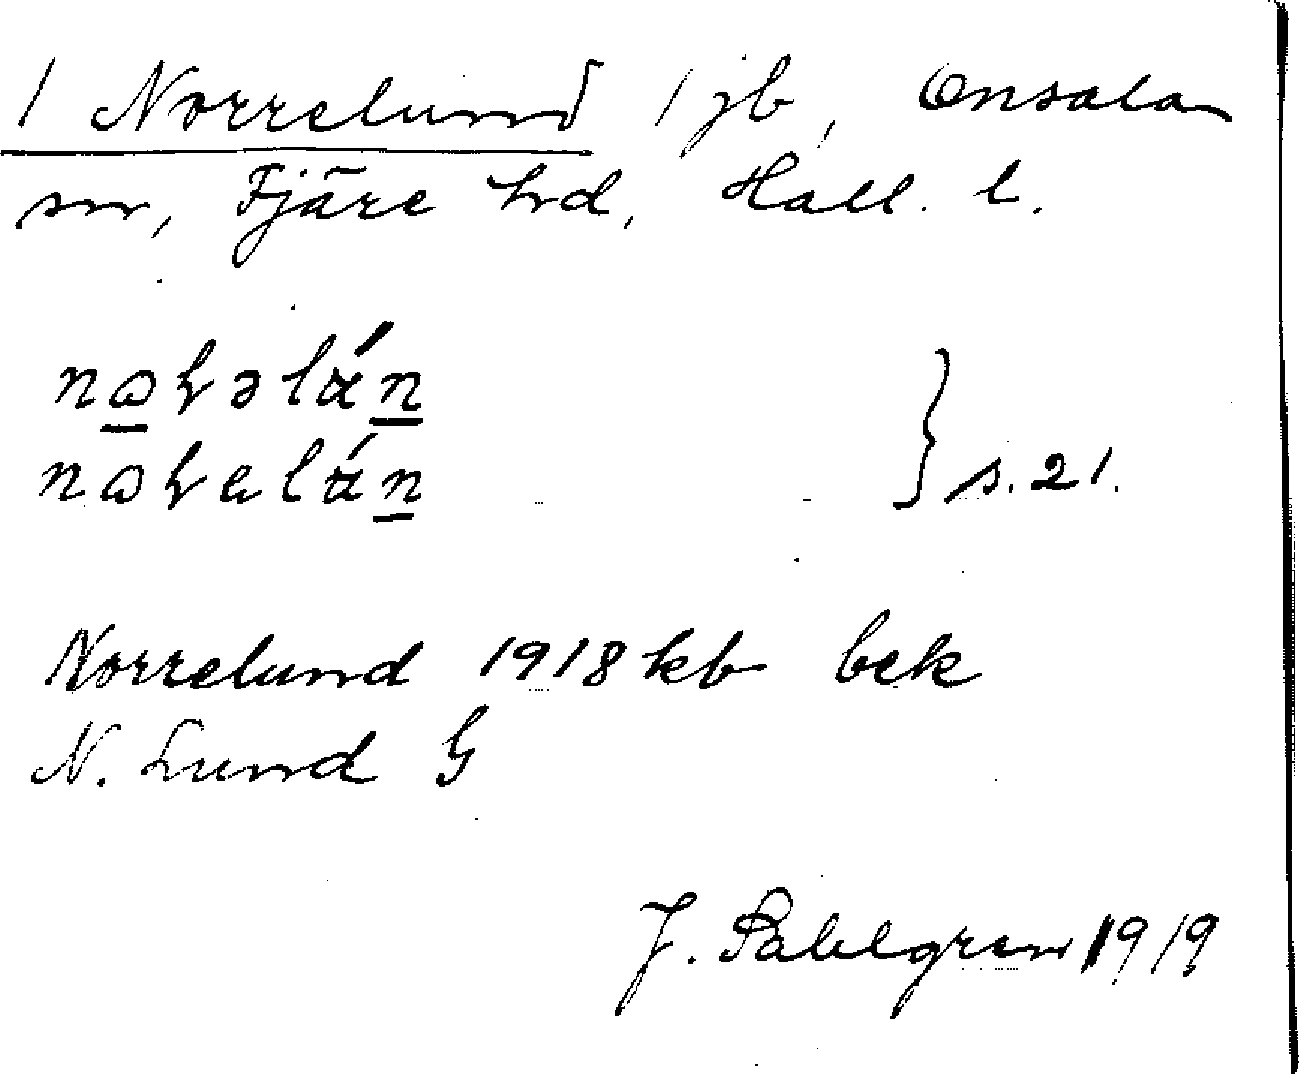 1 Norrelund 1 jb, Onsala
sn, Fjäre hd, Hall. l.
s. 21.
Norrelund 1918 kb bek
N. Lund G
J. Sahlgren 1919